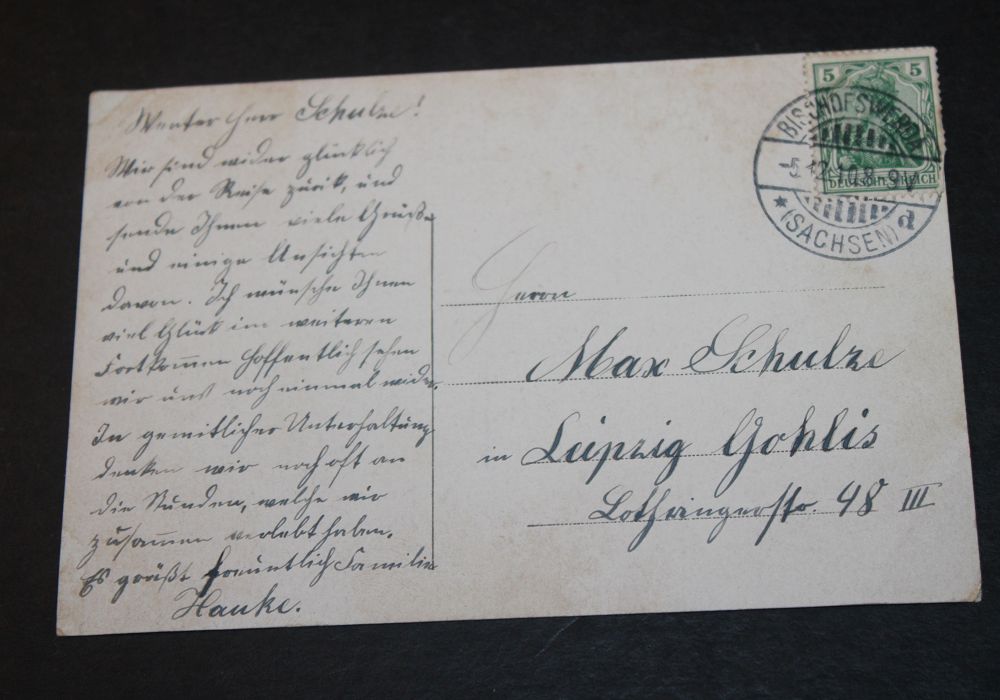 Werter Herr Schulze!
Wir sind wider glücklich
von der Reise zürik, und
sende Ihnen viele Grüße
und einige Ansichten
davon. Ich wünsche Ihnen
viel Glück im weiteren
Fortkommen hoffentlich sehen
wir uns noch einmal wider.
In gemitlicher Unterhaltung
denken wir noch oft an
die Stunden, welche wir
zusammen verlebt haben.
Es grüßt freuntlich Familie
Hauke.
5 5
DEUTSCHES REICH
BISCHOFSWERDA
-5.12.10.8-9V
* (SACHSEN) d
Herrn
Max Schulze
in Leipzig Gohlis
Lothringerstr. 48 III